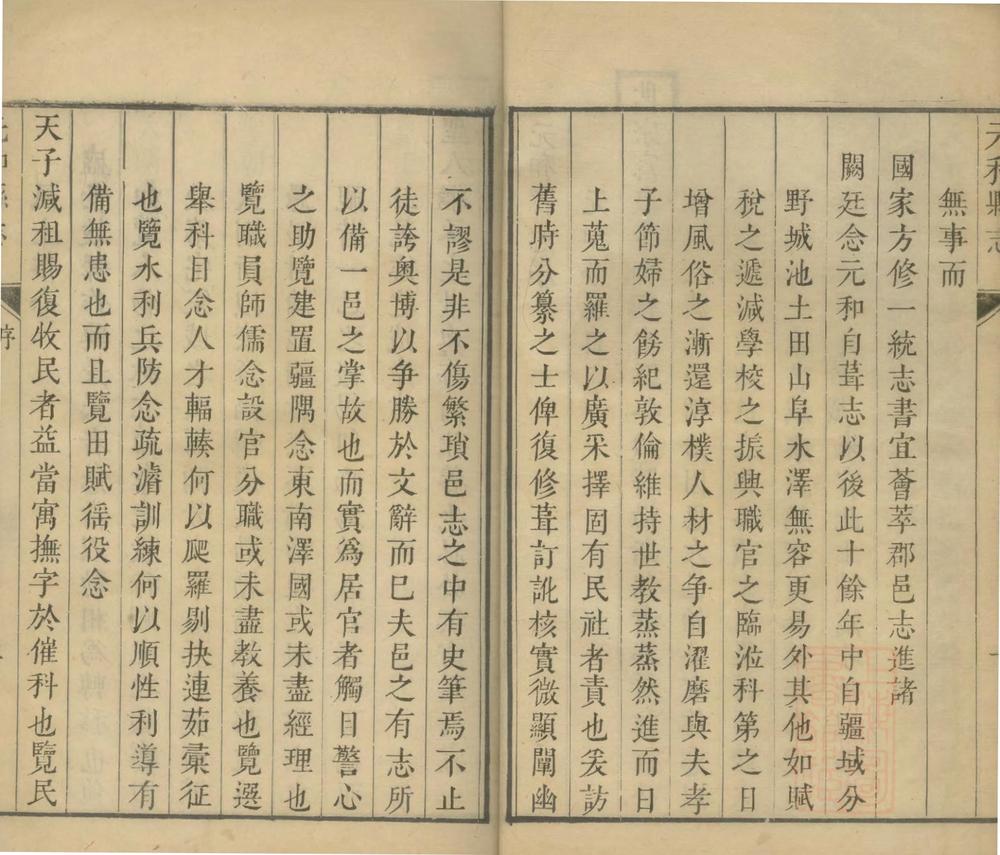 元和縣志
無事而
國家方修一統志書宜薈萃郡邑志進諸
闕廷念元和自葺志以後此十餘年中自疆域分
野城池土田山阜水澤無容更易外其他如賦
稅之遞減學校之振興職官之臨涖科第之日
增風俗之漸還淳樸人材之爭自濯磨與夫孝
子節婦之餝紀敦倫維持世教蒸蒸然進而日
上蒐而羅之以廣采擇固有民社者責也爰訪
舊時分纂之士俾復修葺訂訛核實微顯闡幽
不謬是非不傷繁瑣邑志之中有史筆焉不止
徒誇奥博以争勝於文辭而已夫邑之有志所
以備一邑之掌故也而實爲居官者觸目警心
之助覽建置疆隅念東南澤國或未盡經理也
覽職員師儒念設官分職或未盡教養也覽選
舉科目念人才輻輳何以爬羅剔抉連茹彙征
也覽水利兵防念疏濬訓練何以順性利導有
備無患也而且覽田賦徭役念
天子減租賜復牧民者益當寓撫字於催科也覽民
序